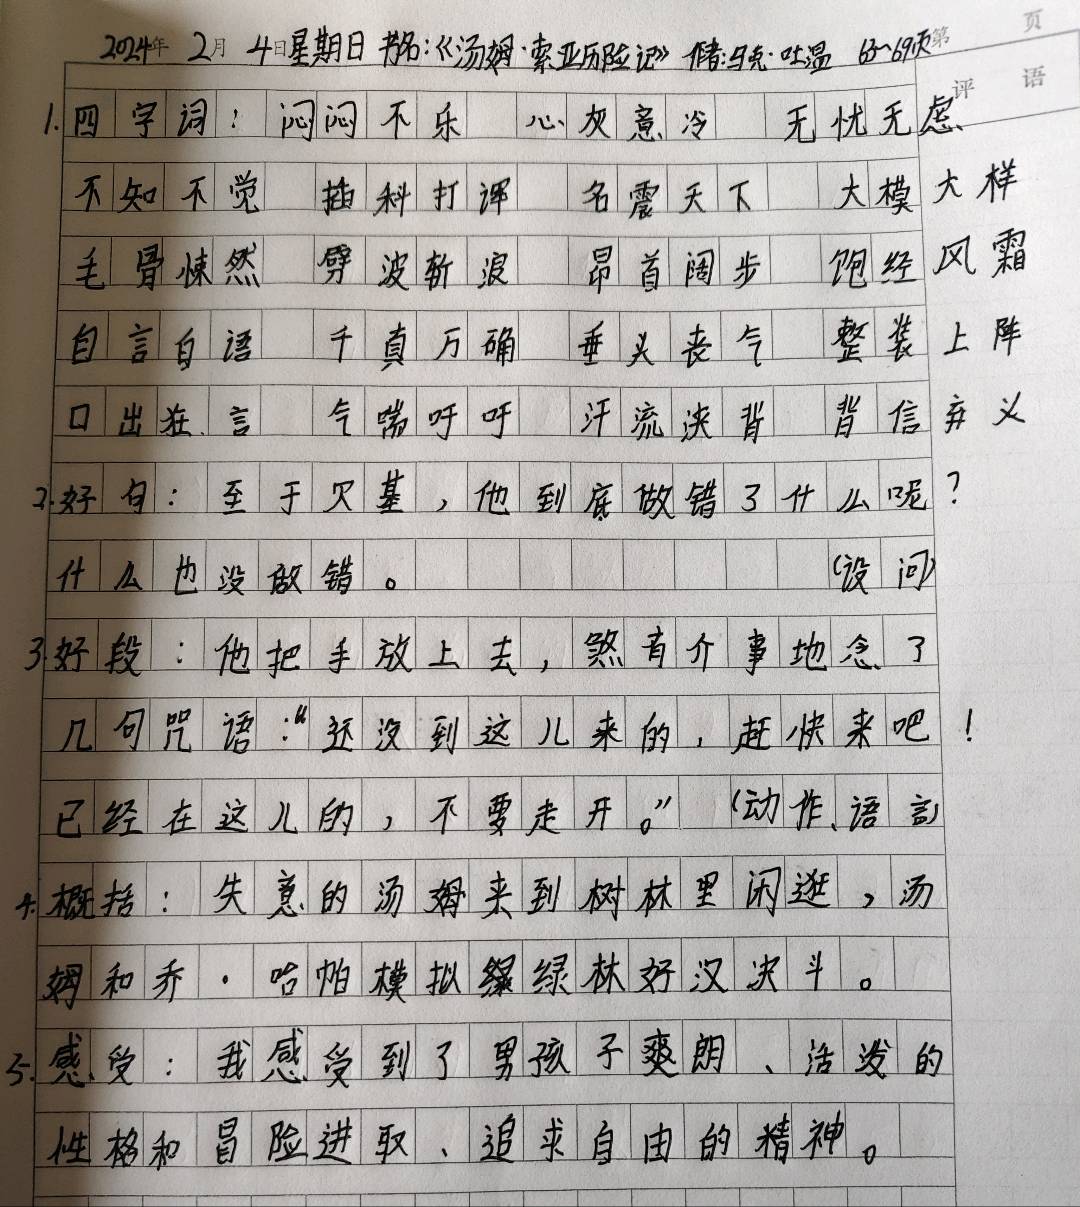 2024年 2月 4日星期日 书名:《汤姆·索亚历险记》 作者:马克·吐温 63~69页第 页
评 语
1.四字词: 闷闷不乐 心灰意冷 无忧无虑
不知不觉 插科打诨 名震天下 大模大样
毛骨悚然 劈波斩浪 昂首阔步 饱经风霜
自言自语 千真万确 垂头丧气 整装上阵
口出狂言 气喘吁吁 汗流浃背 背信弃义
2.好句:至于贝基,他到底做错了什么呢?
什么也没做错。 (设问)
3.好段:他把手放上去,煞有介事地念了
几句咒语:“还没到这儿来的,赶快来吧!
已经在这儿的,不要走开。” (动作、语言)
4.概括:失意的汤姆来到树林里闲逛,汤
姆和乔·哈帕模拟绿林好汉决斗。
5.感受:我感受到了男孩子爽朗、活泼的
性格和冒险进取、追求自由的精神。